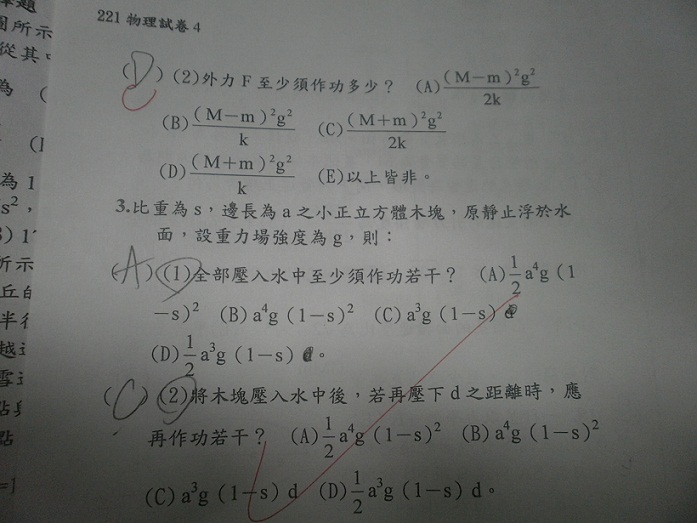 221 物理試卷 4
(D) (2)外力 F 至少須作功多少？ (A) (M－m)²g² / 2k
(B) (M－m)²g² / k (C) (M＋m)²g² / 2k
(D) (M＋m)²g² / k (E)以上皆非。
3.比重為 s，邊長為 a 之小正立方體木塊，原靜止浮於水
面，設重力場強度為 g，則：
(A) (1)全部壓入水中至少須作功若干？ (A) 1/2 a⁴g (1
－s)² (B) a⁴g (1－s)² (C) a³g (1－s)
(D) 1/2 a³g (1－s) 。
(C) (2)將木塊壓入水中後，若再壓下 d 之距離時，應
再作功若干？ (A) 1/2 a⁴g (1－s)² (B) a⁴g (1－s)²
(C) a³g (1－s) d (D) 1/2 a³g (1－s) d。